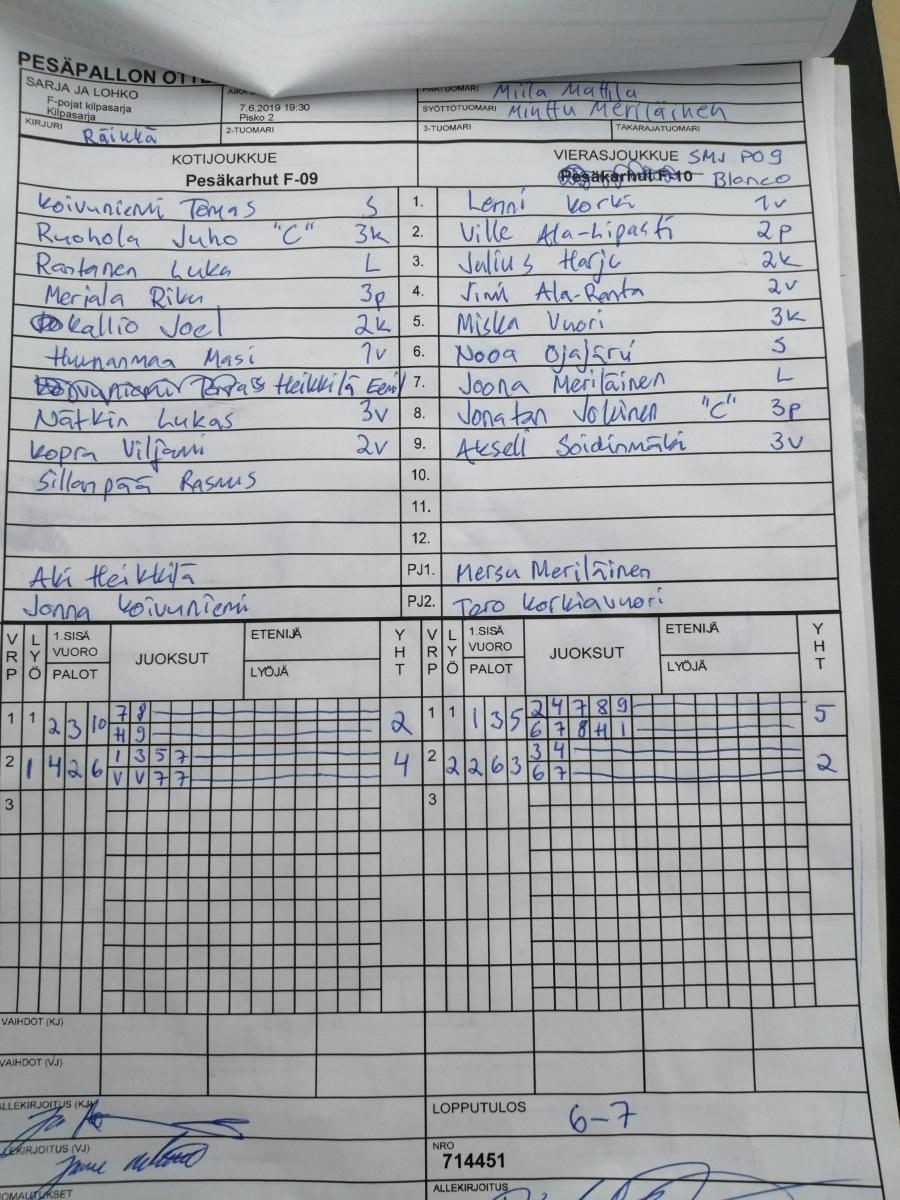 PESÄPALLON OTTE
SARJA JA LOHKO
F-pojat kilpasarja
Kilpasarja
7.6.2019 19:30
Pisko 2
Miila Mattila
SYÖTTÖTUOMARI Minttu Meriläinen
KIRJURI Räikkä
2-TUOMARI
3-TUOMARI
TAKARAJATUOMARI
KOTIJOUKKUE
Pesäkarhut F-09
VIERASJOUKKUE SMJ P09
Blanco
Koivuniemi Tomas S 1. Lenni Korki 1v
Ruohola Juho "C" 3k 2. Ville Ala-Lipasti 2p
Rantanen Luka L 3. Julius Harju 2k
Merjala Riku 3p 4. Jimi Ala-Ranta 2v
Kallio Joel 2k 5. Miska Vuori 3k
Huunanmaa Masi 1v 6. Nooa Ojajärvi S
Heikkilä Eemil 7. Joona Meriläinen L
Nätkin Lukas 3v 8. Jonatan Jokinen "C" 3p
Kopra Viljami 2v 9. Akseli Soidinmäki 3v
Sillanpää Rasmus 10.
11.
12.
Aki Heikkilä PJ1. Mersu Meriläinen
Jonna Koivuniemi PJ2. Tero Korkiavuori
VRP LYÖ 1.SISÄ VUORO PALOT JUOKSUT ETENIJÄ LYÖJÄ YHT VRP LYÖ 1.SISÄ VUORO PALOT JUOKSUT ETENIJÄ LYÖJÄ YHT
1 1 2 3 10 7 8 2 1 1 1 3 5 2 4 7 8 9 5
H 9 6 7 8 H 1
2 1 4 2 6 1 3 5 7 4 2 2 2 6 3 3 4 2
V V 7 7 6 7
3 3
VAIHDOT (KJ)
VAIHDOT (VJ)
ALLEKIRJOITUS (KJ)
LOPPUTULOS 6-7
LEKIRJOITUS (VJ)
NRO
714451
HOMAUTUKSET
ALLEKIRJOITUS